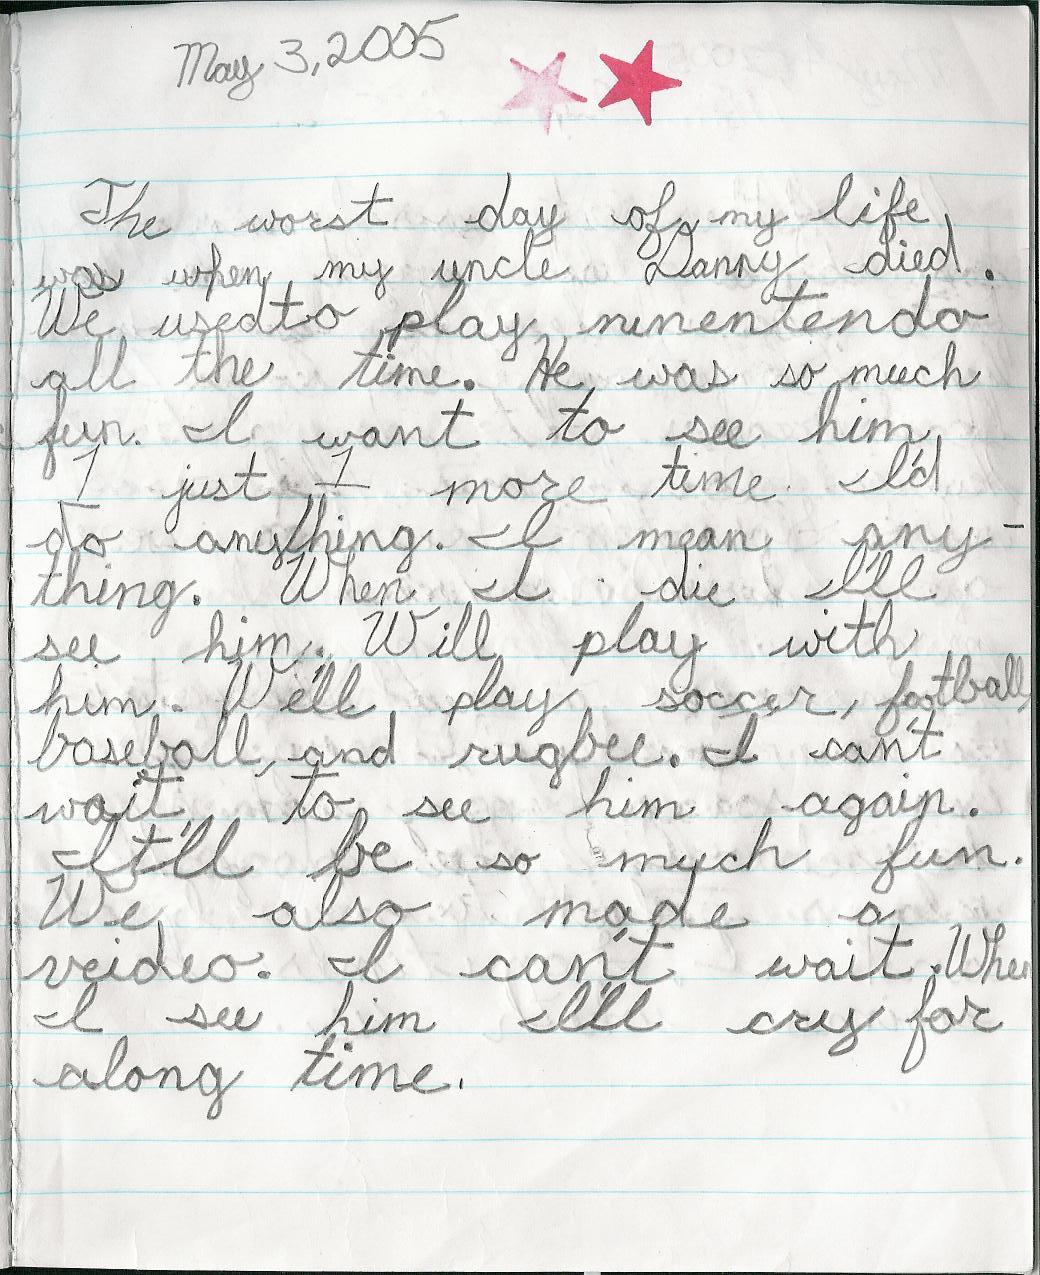 May 3, 2005
The worst day of my life,
was when my uncle Danny died.
We usedto play ninentendo
all the time. He was so much
fun. I want to see him
1 just 1 more time. I'd
do anything. I mean any-
thing. When I die I'll
see him. Will play with
him. We'll play soccer, football,
baseball, and rugbee. I can't
wait to see him again.
It'll be so much fun.
We also made a
veideo. I can't wait. When
I see him I'll cry for
along time.